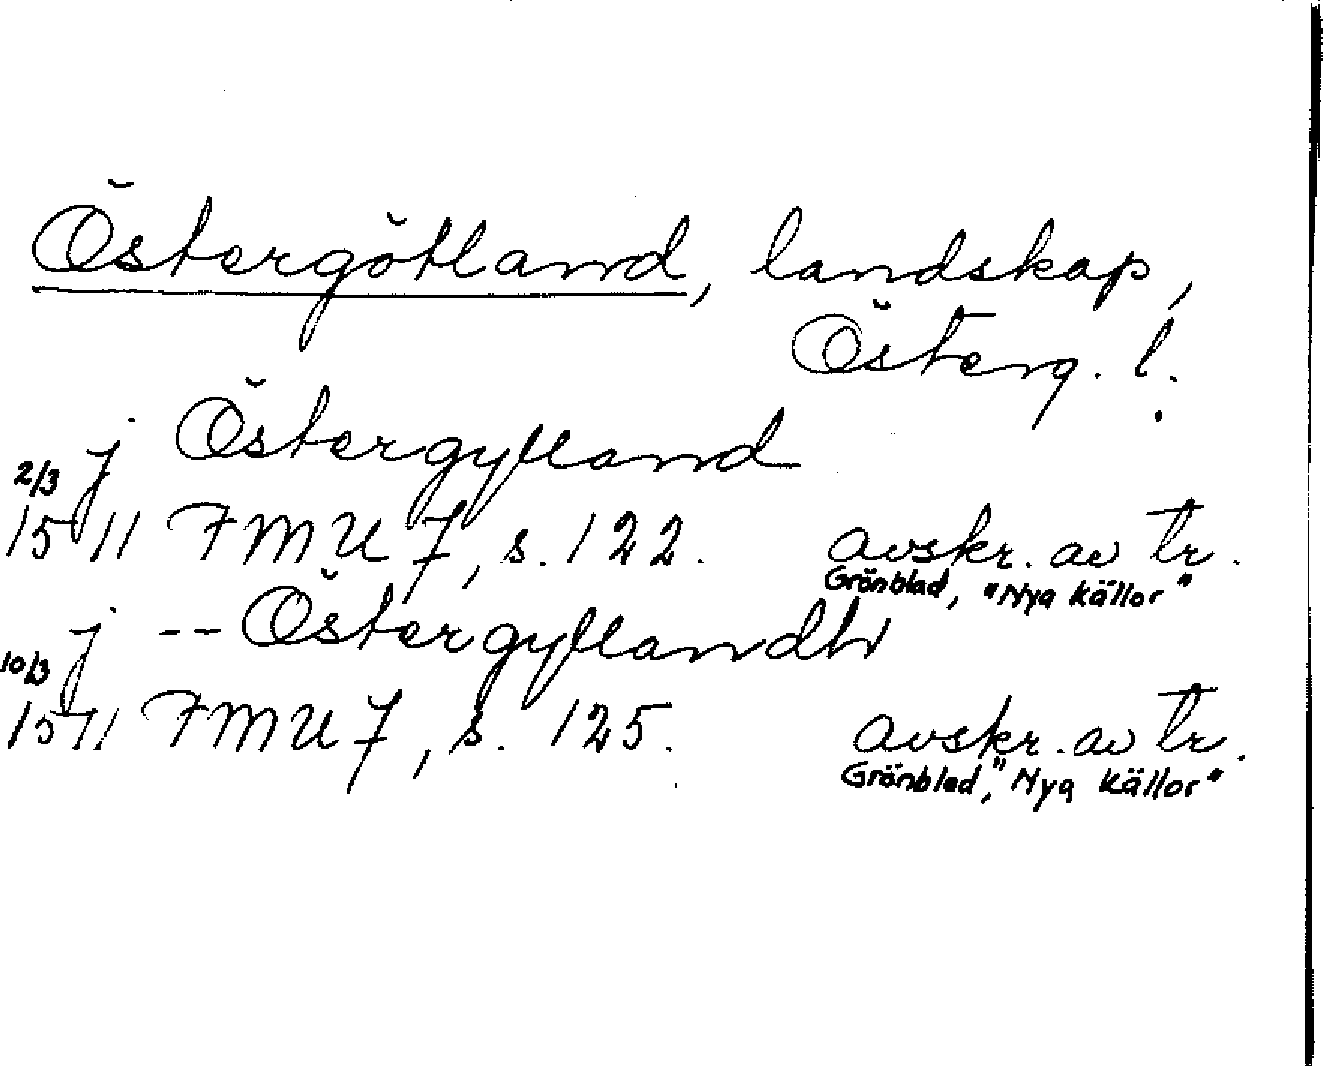 Östergötland, landskap,
Österg. l.
j Östergylland
2/3
1511 FMU 7, s. 122. avskr. av tr.
Grönblad, "Nya källor"
j -- Östergyllandh
10/3
1511 FMU 7, s. 125. avskr. av tr.
Grönblad, "Nya källor"